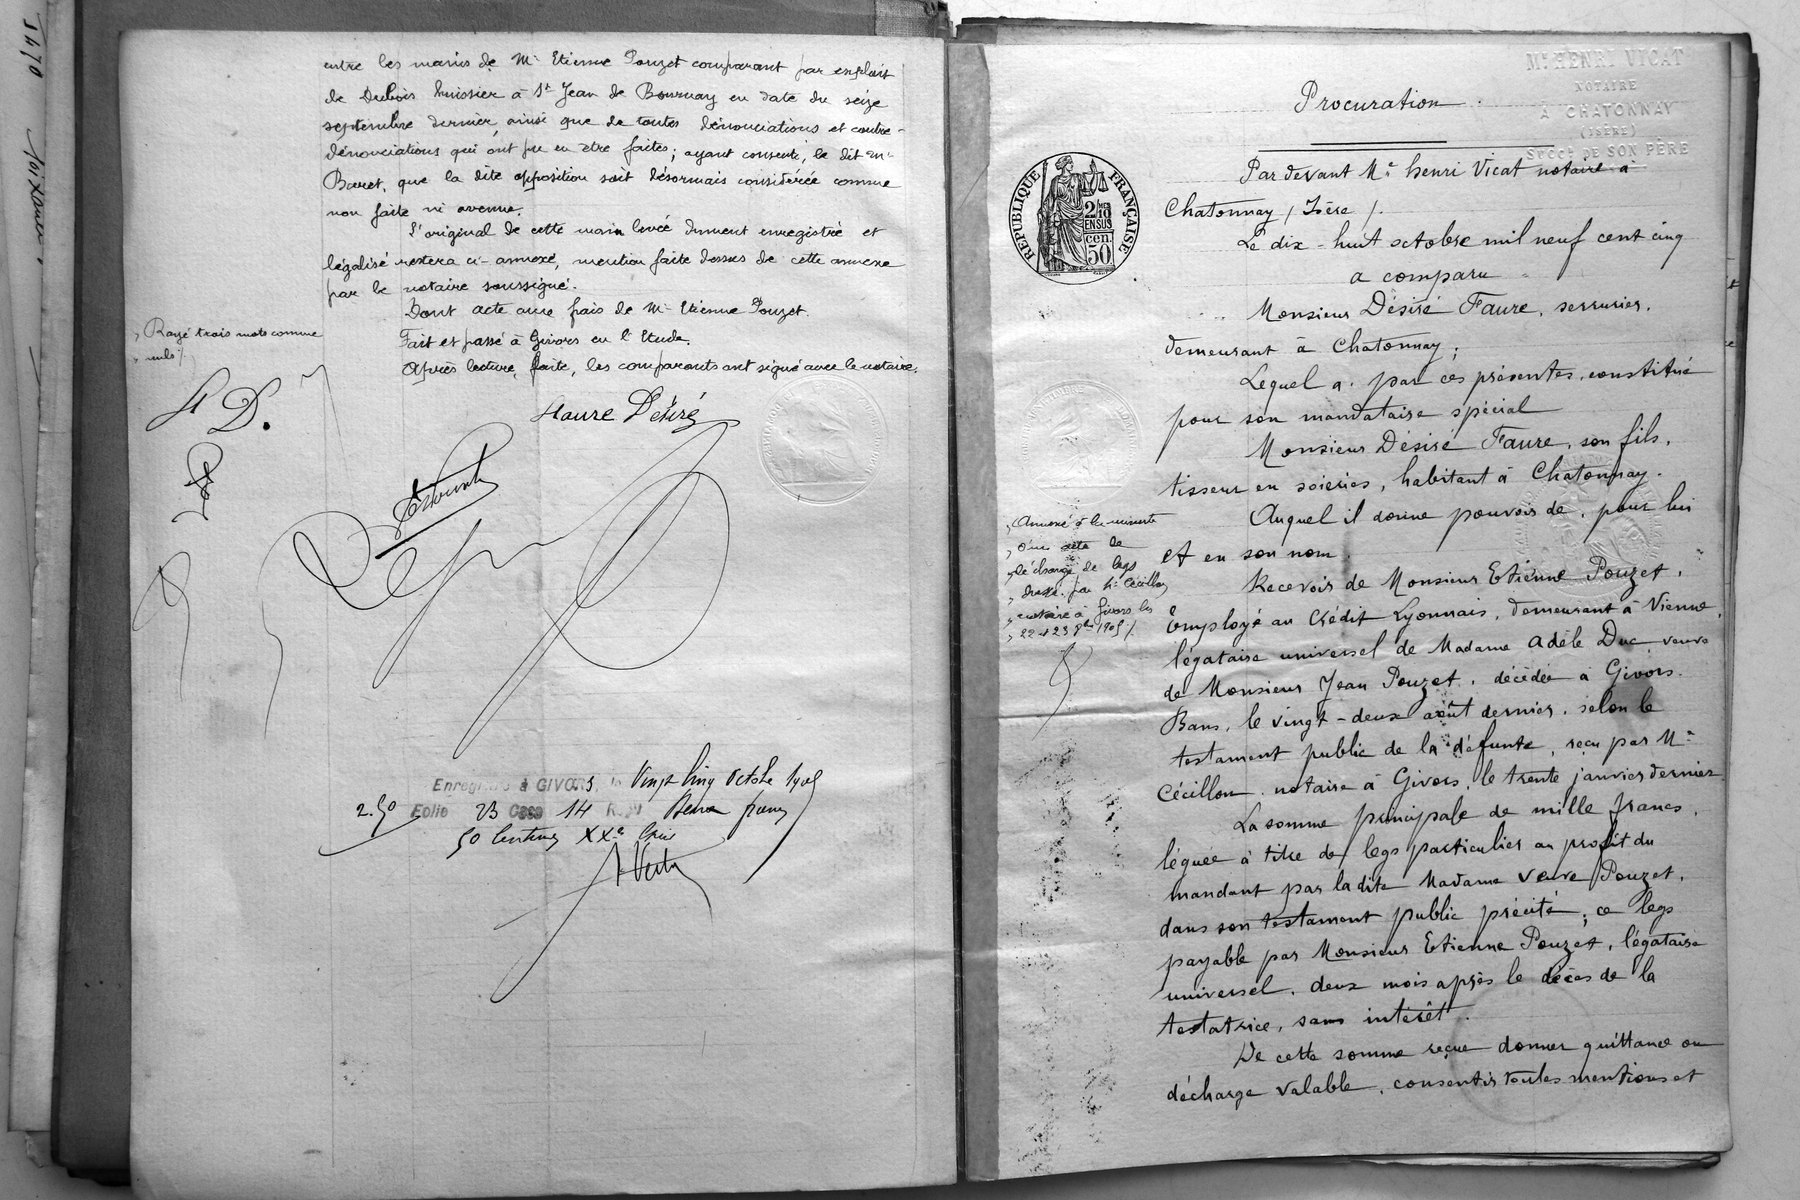 entre les mains de Mr Etienne Pouzet comparant par exploit
de Dubois huissier à St Jean de Bournay en date du seize
septembre dernier, ainsi que de toutes dénonciations et contre-
dénonciations qui ont pu en être faites; ayant consenti, le dit Mr
Baret, que la dite opposition soit désormais considérée comme
non faite ni avenue.
L'original de cette main levée dument enregistré et
légalisé restera ci-annexé, mention faite dessus de cette annexe
par le notaire soussigné.
Dont acte aux frais de Mr Etienne Pouzet.
Fait et passé à Givors en l'Etude.
Après lecture, faite, les comparants ont signé avec le notaire.
Rayé trois mots comme
nuls /.
D.
Faure Désiré
Enregistré à GIVORS, le Vingt cinq Octobre 1905
2.50 Folio 23 Case 14 Deux francs
50 centimes
Procuration.
Me HENRI VICAT
NOTAIRE
À CHATONNAY
(ISÈRE)
SUCCr DE SON PÈRE
RÉPUBLIQUE FRANÇAISE
2/10 EN SUS
50 cen.
Par devant Me henri Vicat notaire à
Chatonnay / Isère /.
Le dix-huit octobre mil neuf cent cinq
a comparu
Monsieur Désiré Faure, serrurier,
demeurant à Chatonnay;
Lequel a, par ces présentes, constitué
pour son mandataire spécial
Monsieur Désiré Faure, son fils,
tisseur en soieries, habitant à Chatonnay.
Auquel il donne pouvoir de, pour lui
et en son nom
Recevoir de Monsieur Etienne Pouzet,
Employé au Crédit Lyonnais, demeurant à Vienne,
légataire universel de Madame Adèle Duc, veuve
de Monsieur Jean Pouzet, décédée à Givors.
Bans, le vingt-deux août dernier, selon le
testament public de la défunte, reçu par Me
Cécillon, notaire à Givors, le trente janvier dernier
La somme principale de mille francs,
léguée à titre de legs particulier au profit du
mandant par ladite Madame veuve Pouzet,
dans son testament public précité; ce legs
payable par Monsieur Etienne Pouzet, légataire
universel, deux mois après le décès de la
testatrice, sans intérêt.
De cette somme reçue donner quittance ou
décharge valable, consentir toutes mentions et
Annexé à la minute
d'un acte de
décharge de legs
dressé par Me Cécillon
notaire à Givors les
22 et 23 8bre 1905 /.